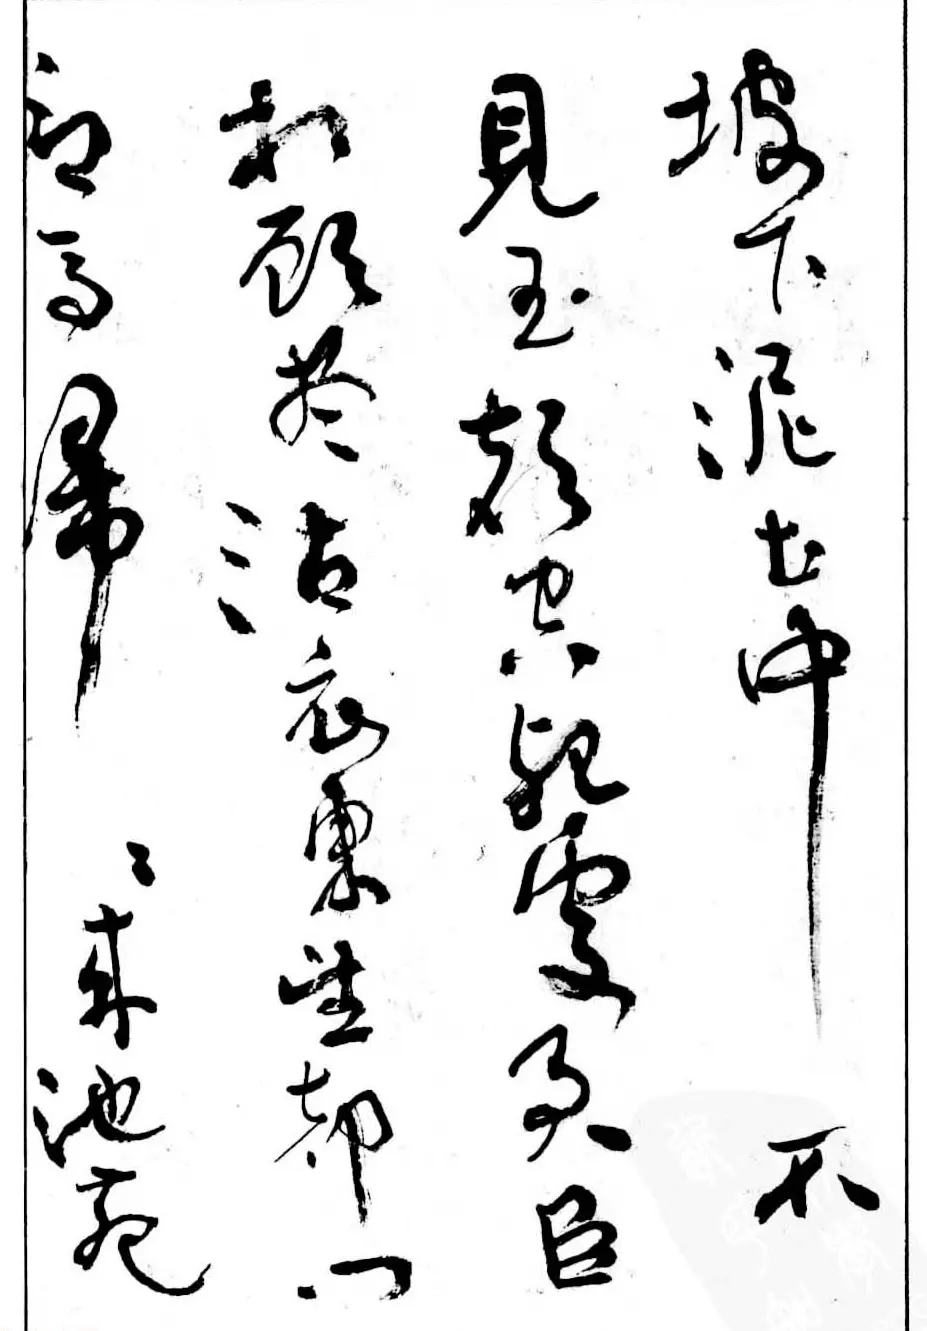 坡下泥土中不
見玉顏空死處君臣
相顧盡沾衣東望都門
信馬歸〻來池苑